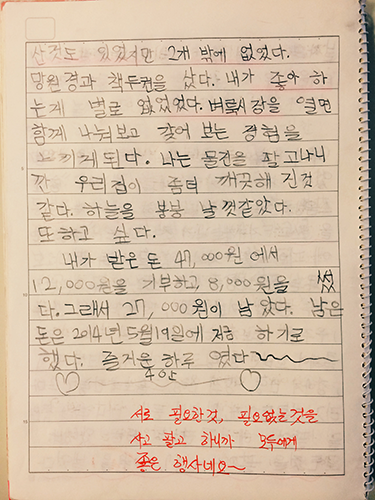 산것도 있었지만 2개 밖에 없었다.
망원경과 책두권을 샀다. 내가 좋아 하
는게 별로 없었었다. 벼룩시장을 열면
함께 나눠보고 같이 보는 경험을
느끼게된다. 나는 물건을 팔고나니
까 우리집이 좀더 깨끗해 진것
같다. 하늘을 붕붕 날 껏같았다.
또하고 싶다.
내가 받은 돈 47,000원 에서
12,000원을 기부하고, 8,000원을 썼
다. 그래서 27,000원이 남았다. 남은
돈은 2014년 5월19일에 저금 하기로
했다. 즐거운 하루 였다
서로 필요한것, 필요없는것을
사고 팔고 하니까 모두에게
좋은 행사네요~